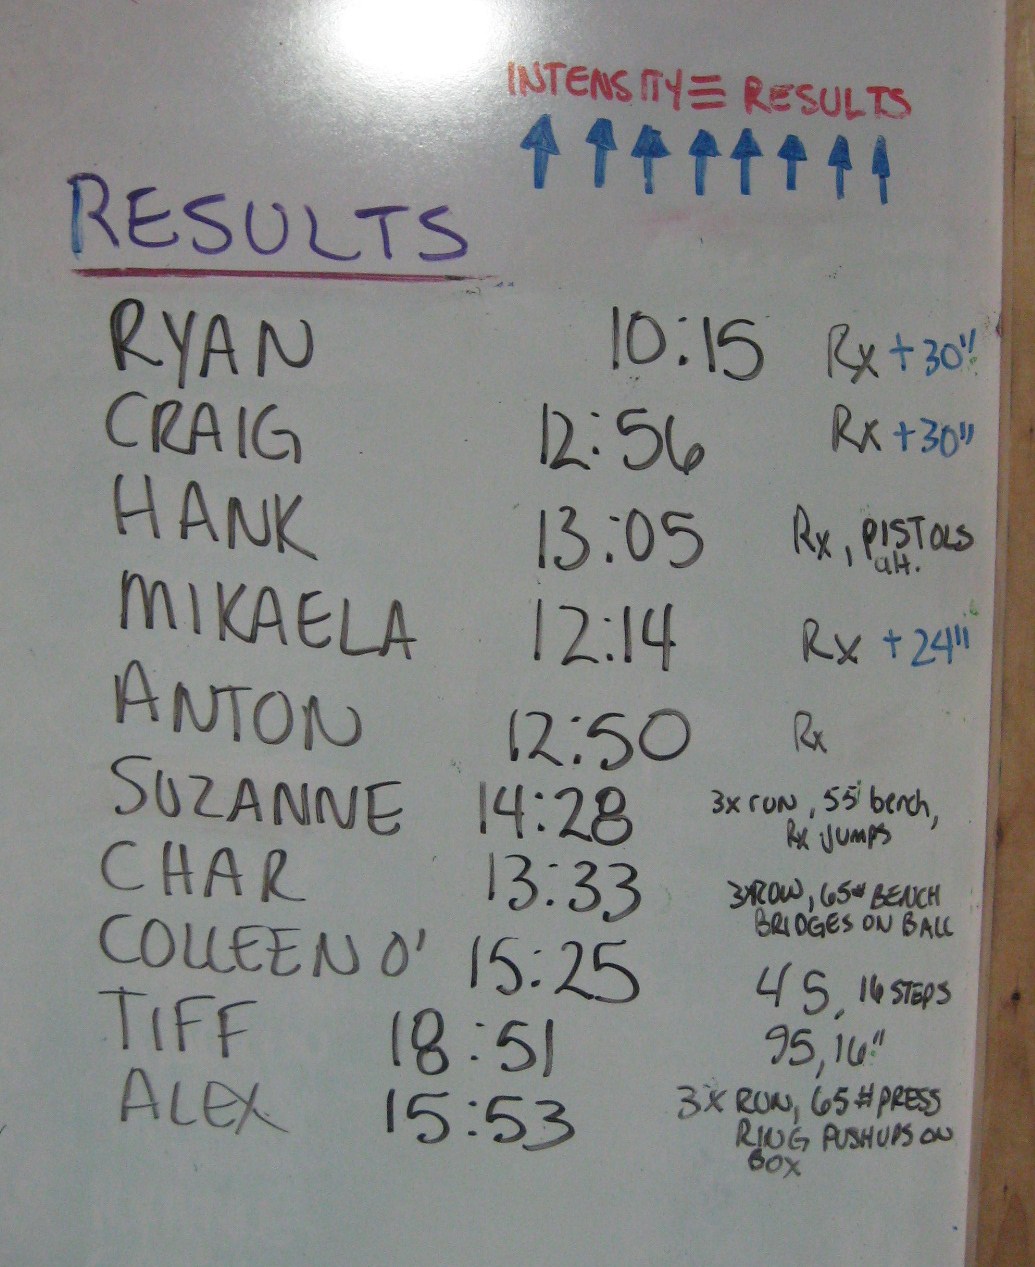 INTENSITY ≡ RESULTS
RESULTS
RYAN 10:15 Rx +30"
CRAIG 12:56 Rx +30"
HANK 13:05 Rx, PISTOLS
alt.
MIKAELA 12:14 Rx +24"
ANTON 12:50 Rx
SUZANNE 14:28 3x run, 55 bench,
Rx Jumps
CHAR 13:33 3xROW, 65# BENCH
BRIDGES ON BALL
COLLEEN O' 15:25 45, 16 STEPS
TIFF 18:51 95, 16"
ALEX 15:53 3x RUN, 65# PRESS
RING PUSHUPS ON
BOX